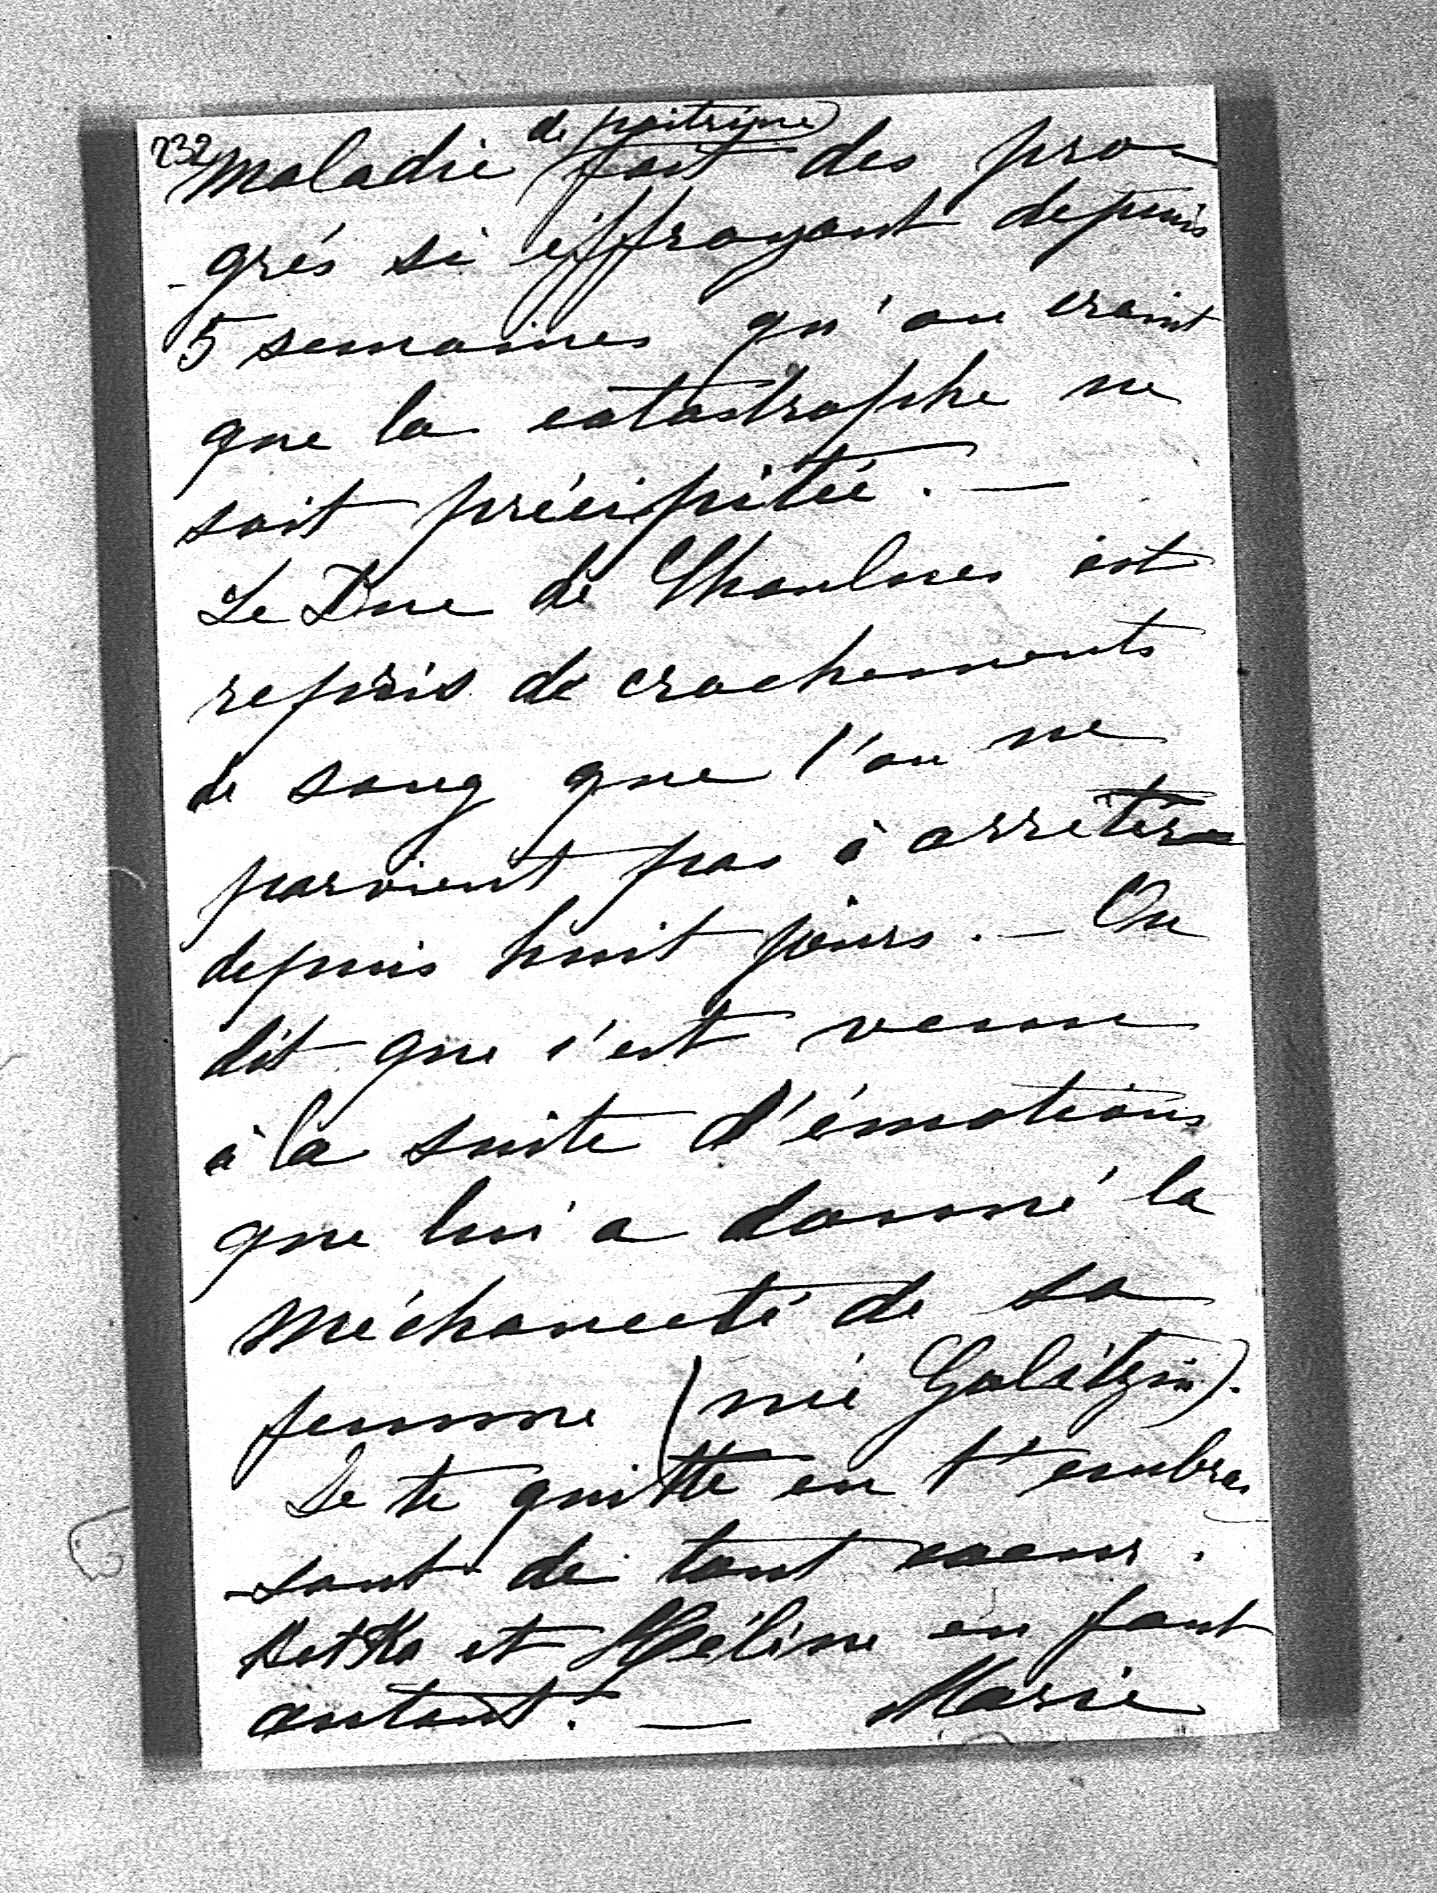 232
de poitrine
maladie fait des pro-
-grés si effroyant depuis
5 semaines qu'on craint
que la catastrophe ne
soit précipitée. —
Le Duc de Chaulnes est
repris de crachements
de sang que l'on ne
parvient pas à arrêter
depuis huit jours. — On
dit que c'est venu
à la suite d'émotions
que lui a donné la
méchanceté de sa
femme (née Galitzin).
Je te quitte en t'embras
-sant de tout coeur.
et Hélène en font
autant. — Marie